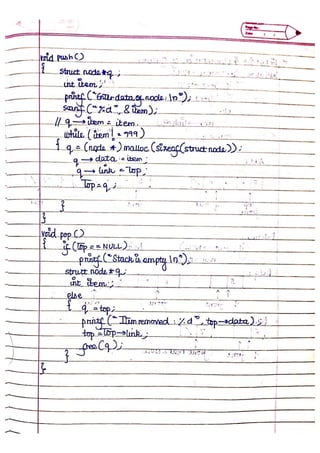 void push()
{ struct node *q;
int item;
printf("Enter data of node: \n");
scanf("%d", &item);
// q → item = item.
while (item != -999)
{ q = (node *) malloc (sizeof(struct node));
q → data = item;
q → link = Top;
Top = q;
}
}
void pop()
{ if (top == NULL)
printf("Stack is empty \n");
struct node *q;
int item;
else
{ q = top;
printf("Item removed : %d", top→data);
top = top→link;
free(q);
}
}